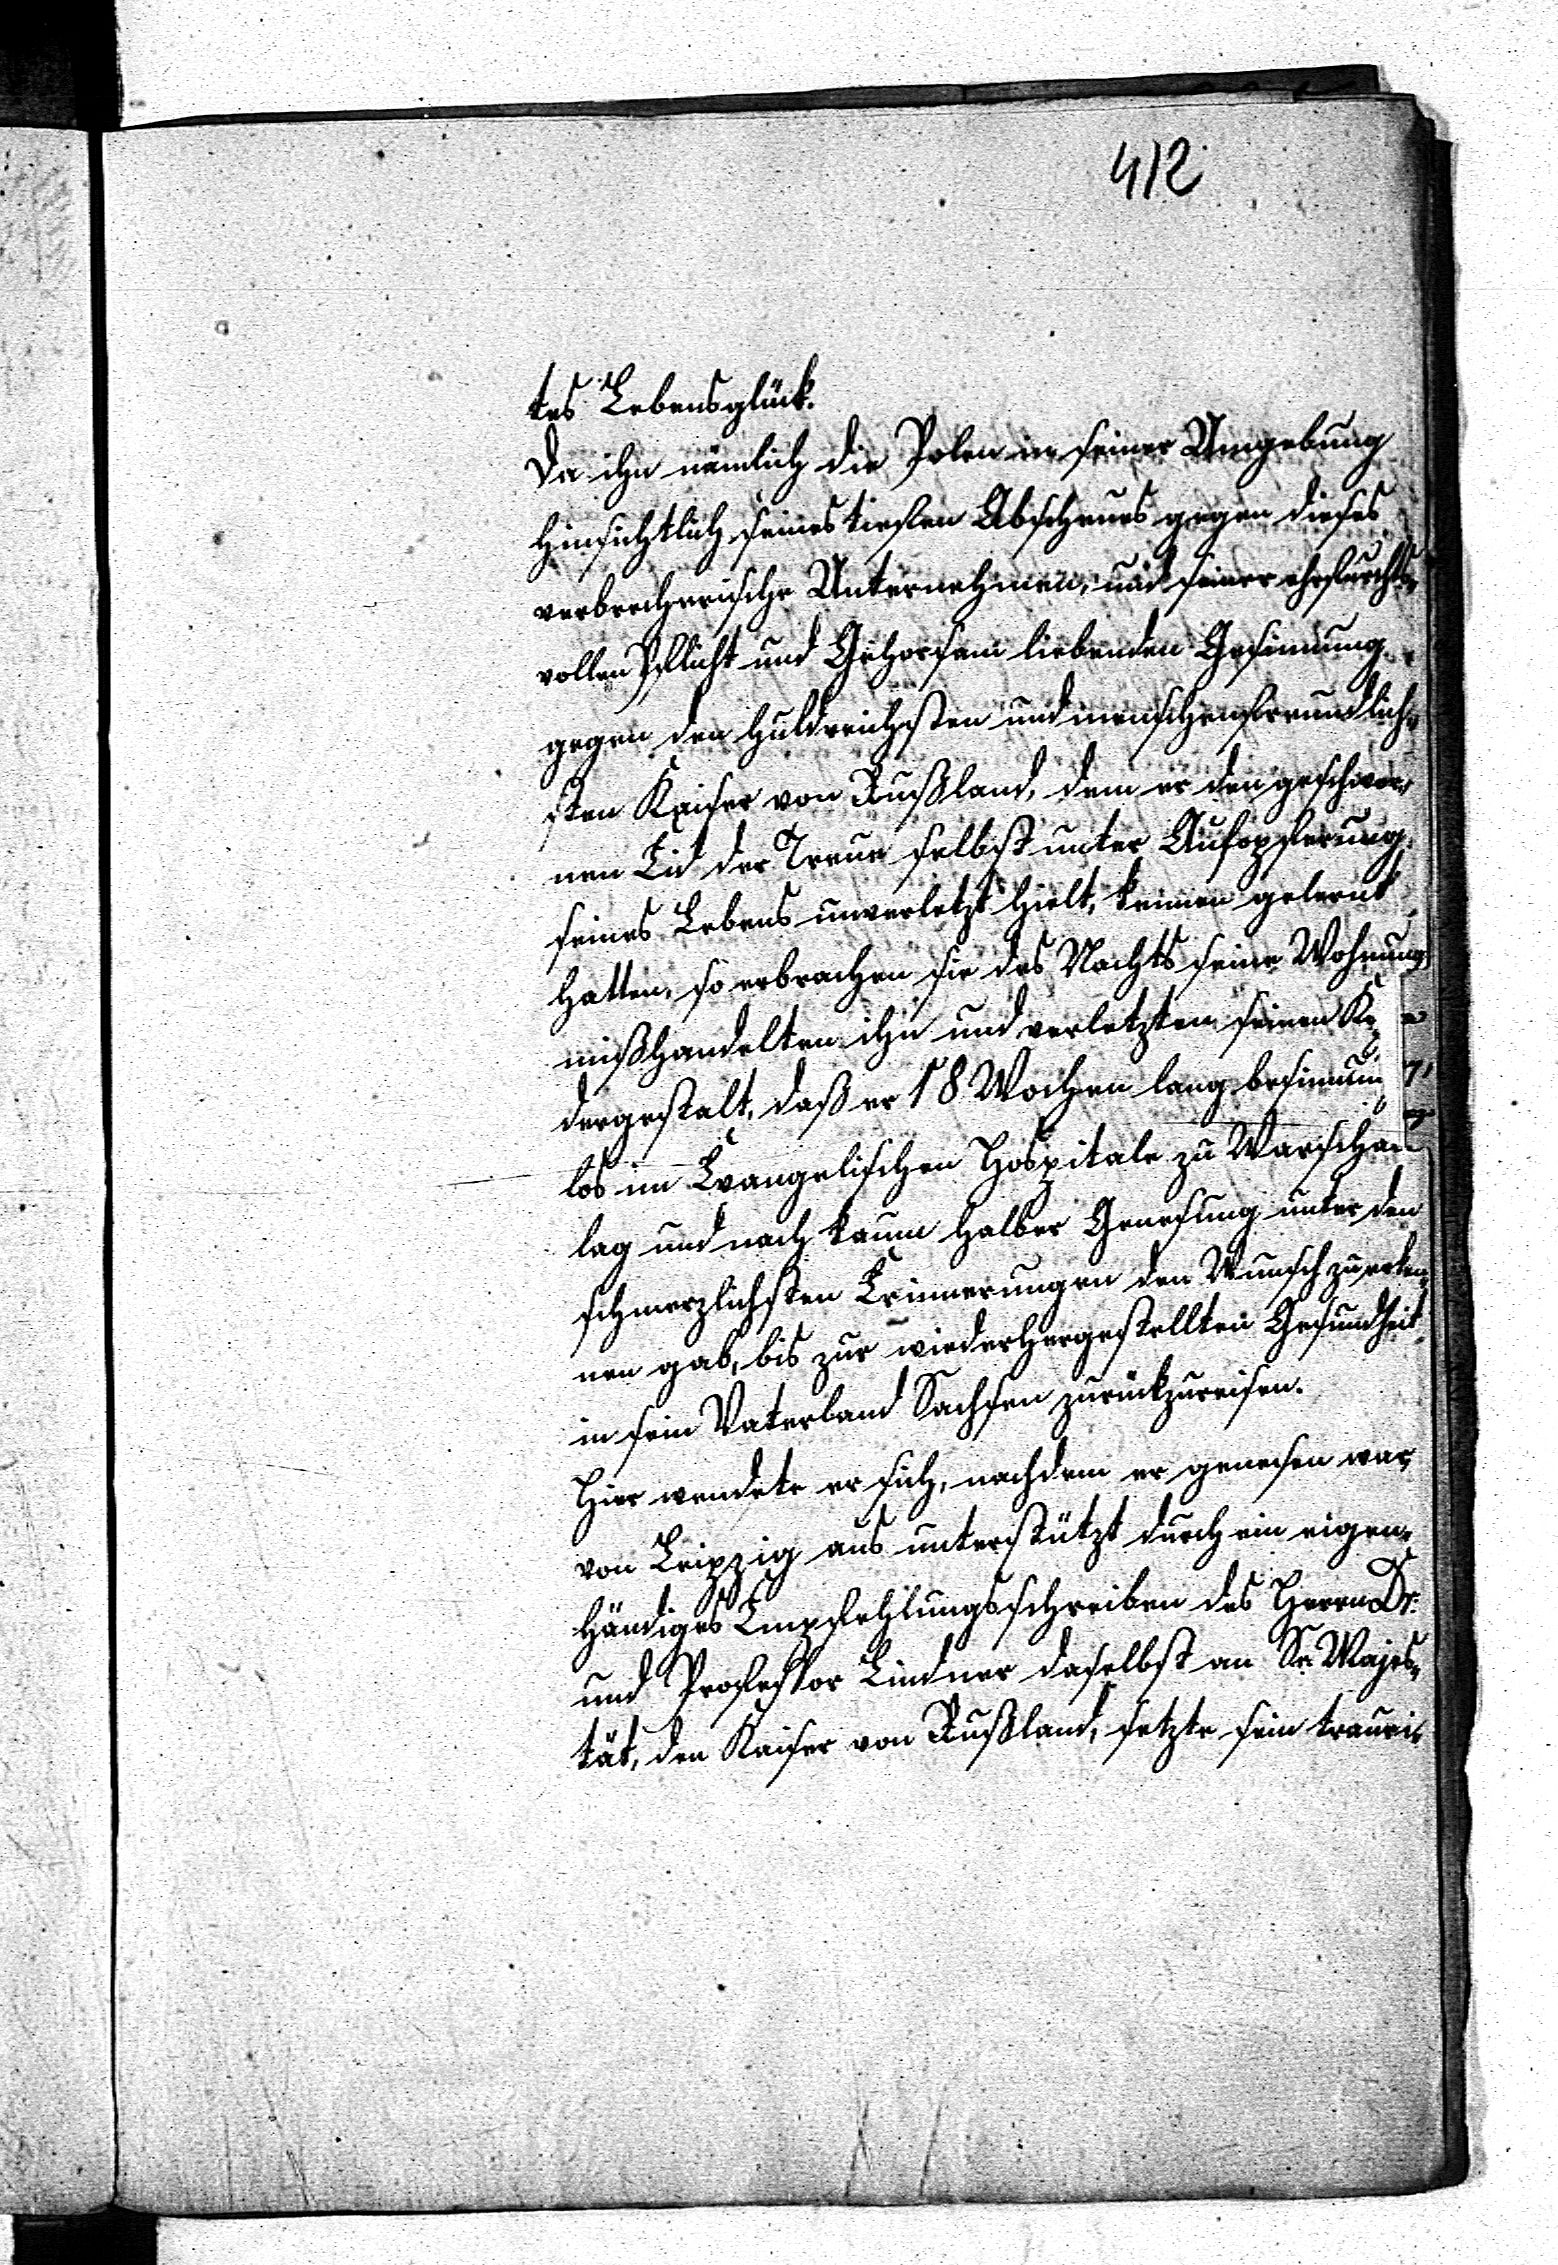 412
tes Lebensglück.
Da ihn nämlich die Polen in seiner Umgebung
hinsichtlich seines tiefen Abscheues gegen dieses
verbrecherische Unternehmen, und seiner ehrfurchts-
vollen Pflicht und Gehorsam liebenden Gesinnung
gegen den huldreichsten und menschenfreundlich-
sten Kaiser von Rußland, dem er den geschwor-
nen Eid der Treue selbst unter Aufopferung
seines Lebens unverletzt hielt, kennen gelernt
hatten, so erbrachen sie des Nachts seine Wohnung
mißhandelten ihn und verletzten seinen
dergestalt, daß er 18 Wochen lang besinnun
los im Evangelischen Hospitale zu Warschau
lag und nach kaum halber Genesung unter den
schmerzlichsten Erinnerungen den Wunsch zu erken-
nen gab, bis zur wiederhergestellten Gesundheit
in sein Vaterland Sachsen zurückzureisen.
Hier wendete er sich, nachdem er genesen war
von Leipzig aus unterstützt durch ein eigen-
händiges Empfehlungsschreiben des Herrn Dr.
und Professor Lindner daselbst an Se. Majes-
tät, den Kaiser von Rußland, setzte sein trauri-